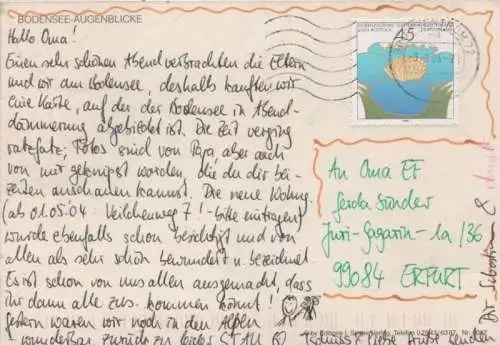 BODENSEE-AUGENBLICKE
Hallo Oma!
Einen sehr schönen Abend verbrachten die Eltern
und wir am Bodensee, deshalb kauften wir
eine Karte, auf der der Bodensee in Abend-
dämmerung abgebildet ist. Die Zeit verging
ratzfatz, Fotos sind von Papa, aber auch
von mir geknipst worden, die du dir bei-
zeiten anschauen kannst. Die neue Wohng.
(ab 01.05.04 Veilchenweg 7! - bitte eintragen)
wurde ebenfalls schon besichtigt und von
allen als sehr schön bewundert u. bezeichnet.
Es ist schon von uns allen ausgemacht, dass
ihr dann alle zus. kommen könnt!
Gestern waren wir noch in den Alpen
- wunderbar.
Tschüss & liebe Grüße senden
Sebastian &
45
An Oma EF
Gerda Sünder
Juri-Gagarin- 1a/36
99084 ERFURT